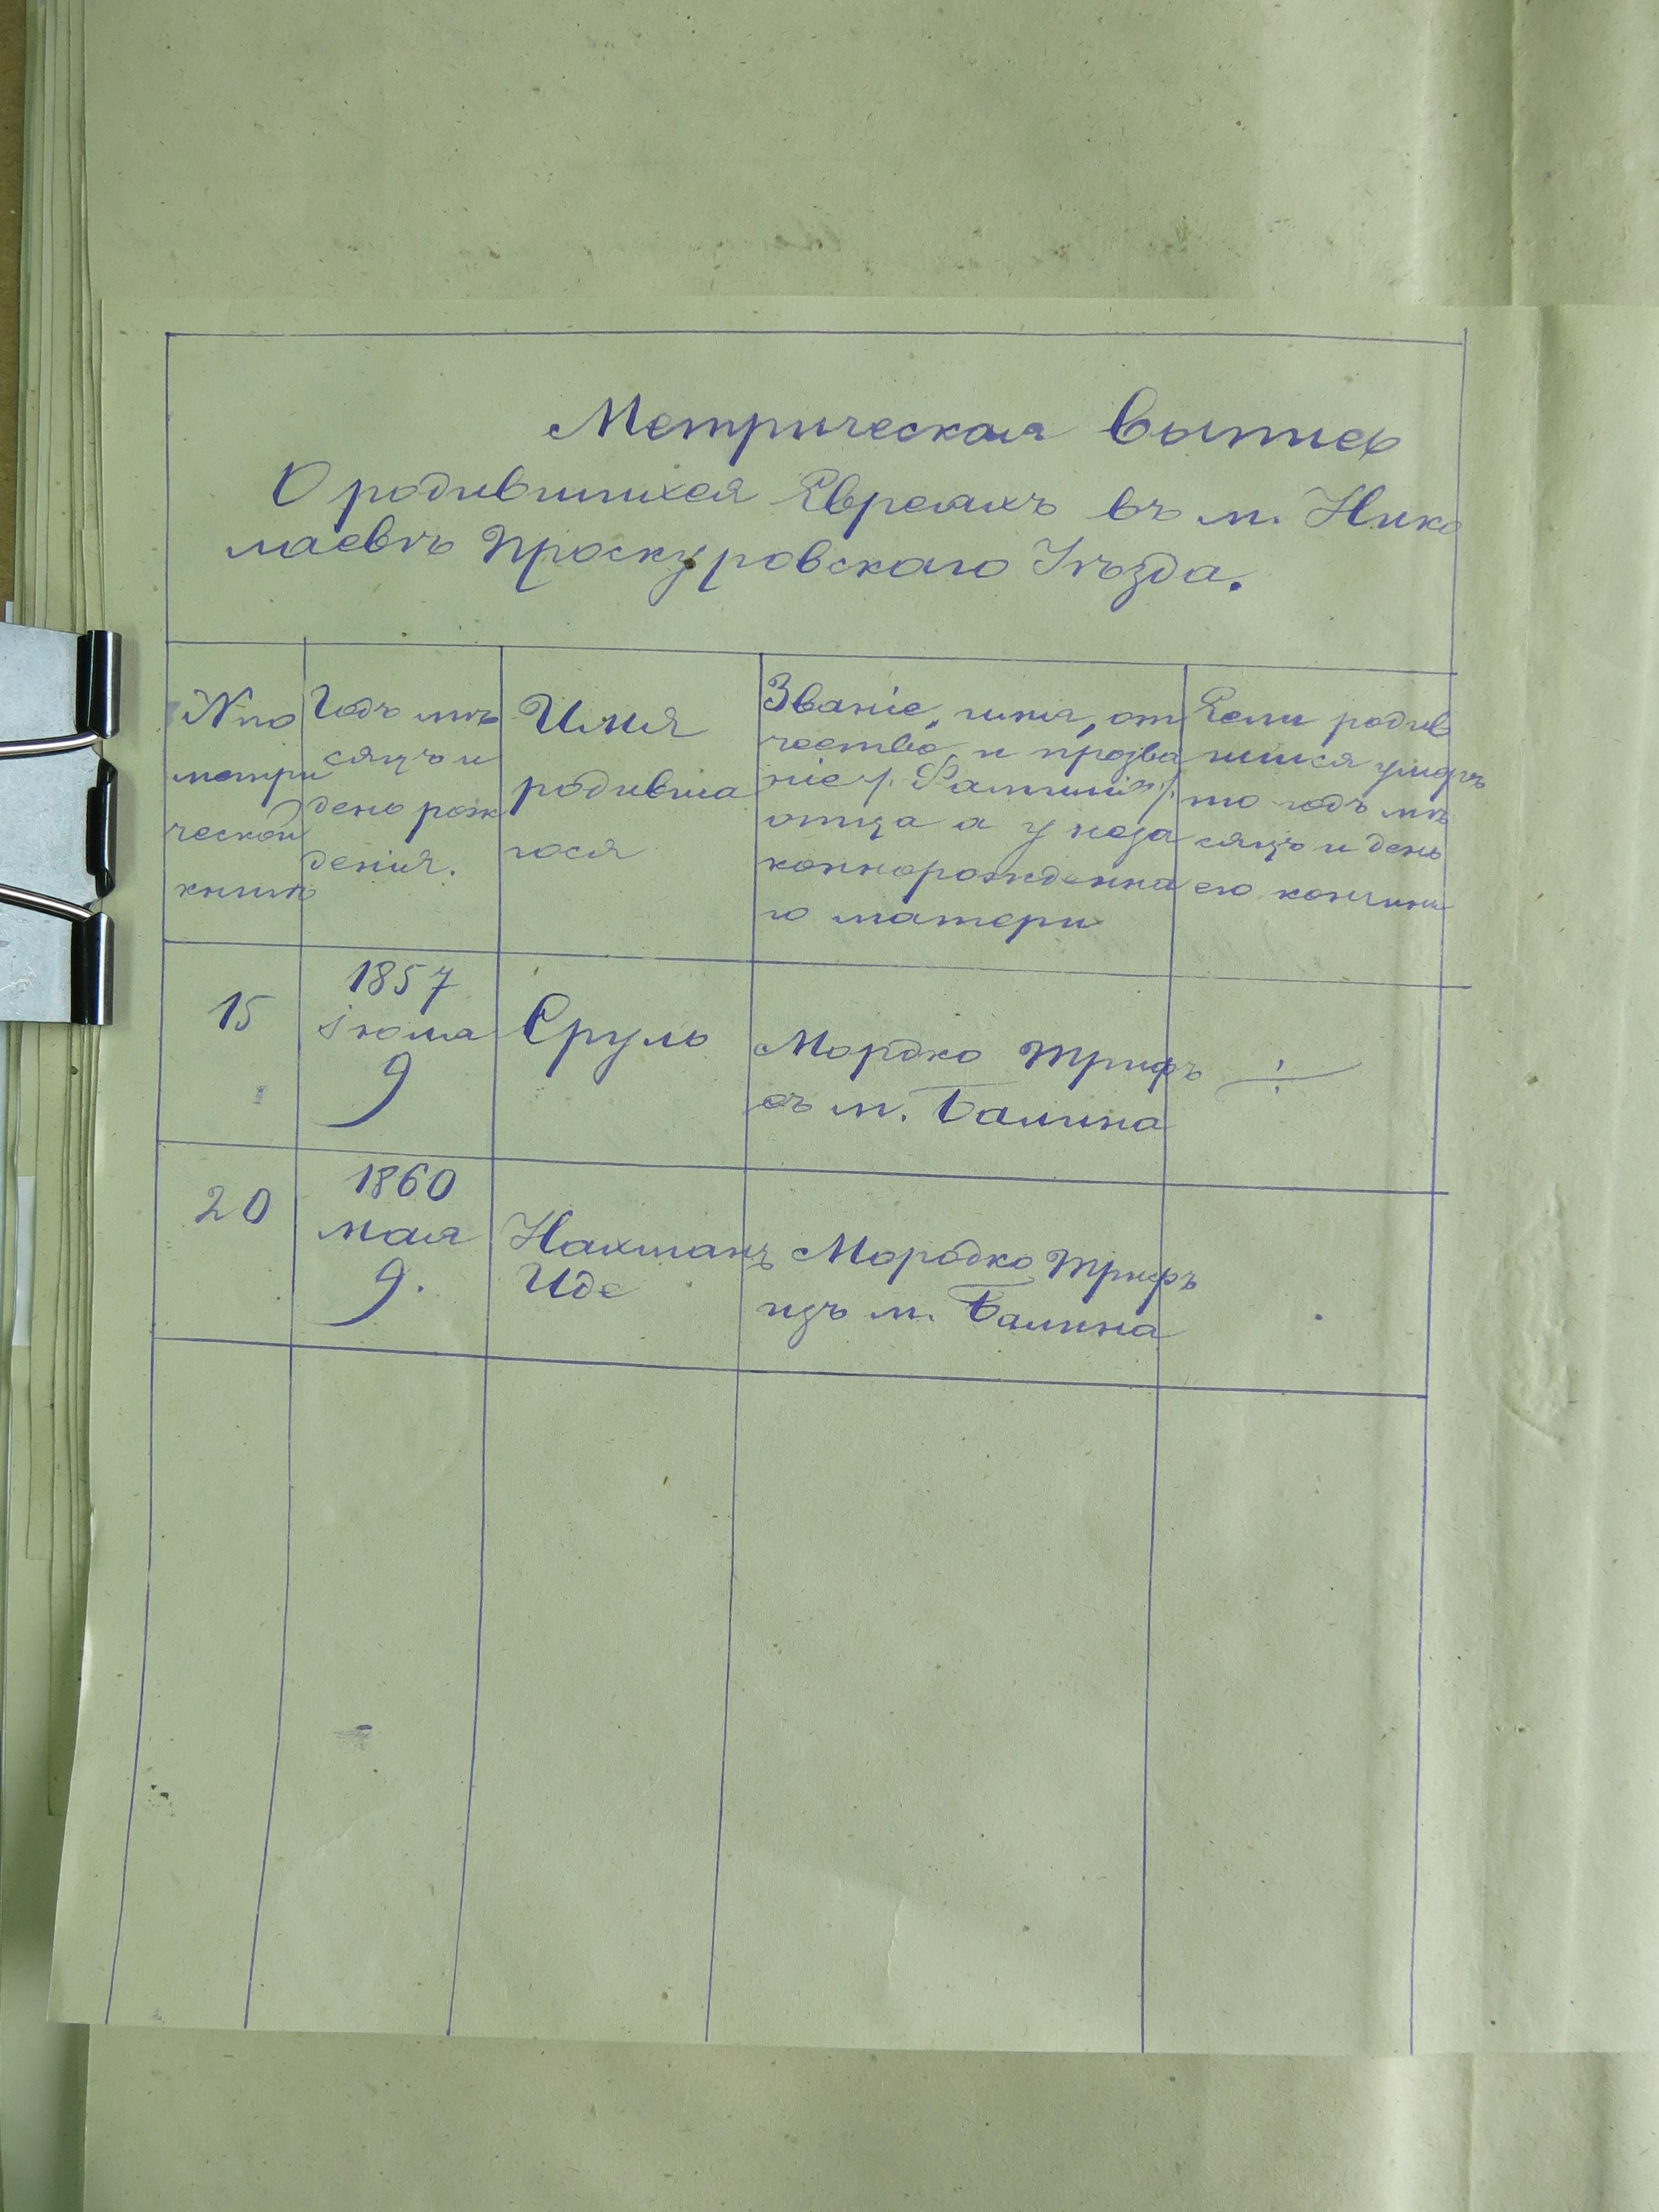 Метрическая выпись
О родившихся Евреяхъ въ м. Нико
лаевѣ Проскуровскаго Уѣзда.
№ по
метри
ческой
книгѣ
Годъ мѣ
сяцъ и
день рож
денія.
Имя
родивша
гося
Званіе, имя, от
чество, и прозва
ніе /. Фамилія /.
отца а у неза
коннорожденна
го матери
Если родив
шійся умеръ
то годъ мѣ
сяцъ и день
его кончины
15
1857
Іюля
9
Сруль
Мордко Трифъ
съ м. Балина
÷
20
1860
мая
9.
Нахманъ
Иде
Мородко Трифъ
изъ м. Балина